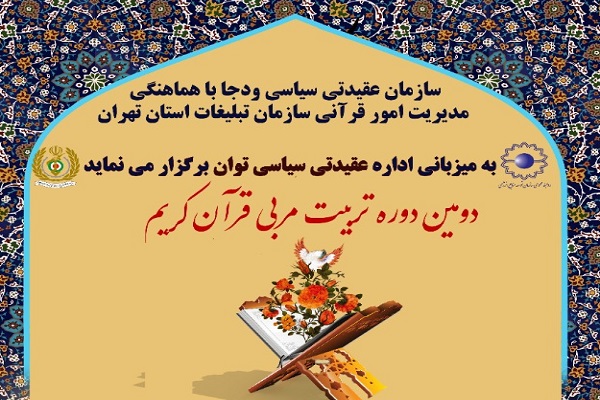 سازمان عقیدتی سیاسی ودجا با هماهنگی
مدیریت امور قرآنی سازمان تبلیغات استان تهران
به میزبانی اداره عقیدتی سیاسی توان برگزار می نماید
دومین دوره تربیت مربی قرآن کریم